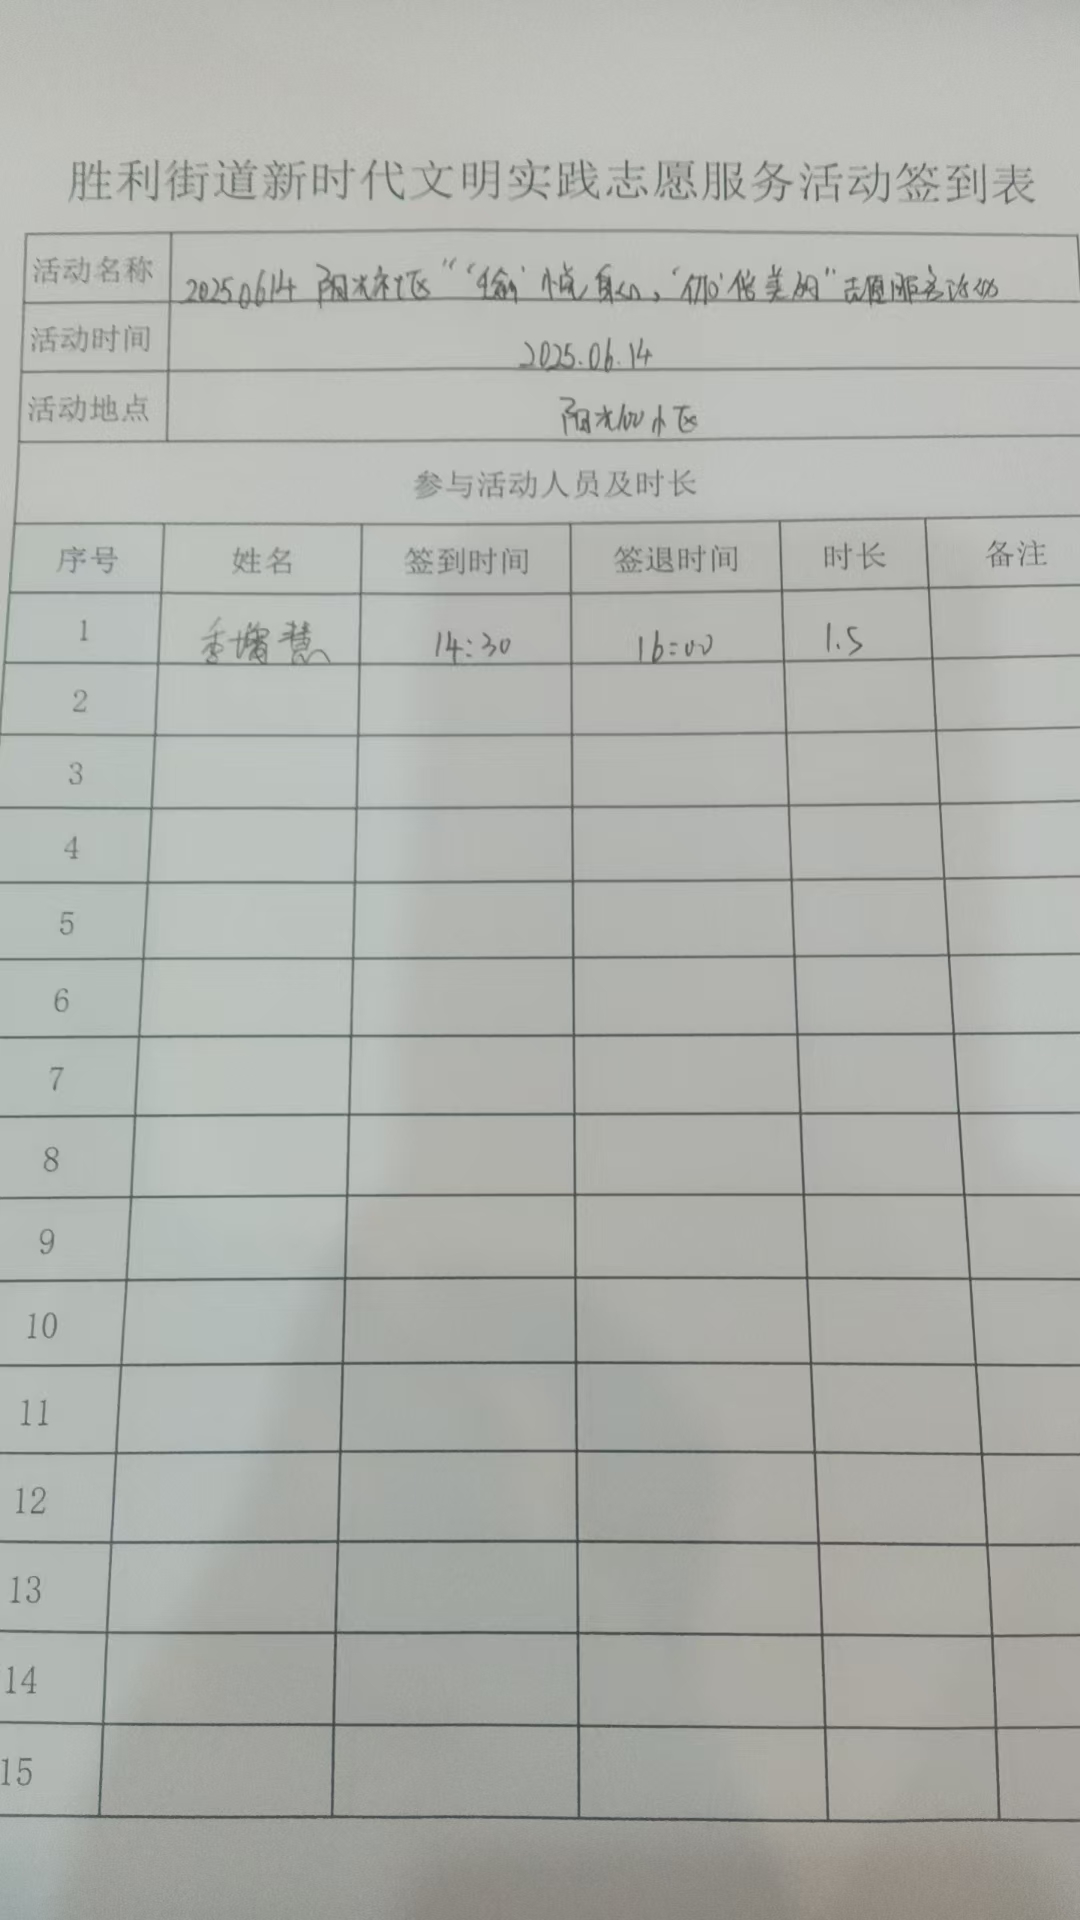 胜利街道新时代文明实践志愿服务活动签到表
活动名称 20250614 阳光社区“‘瑜’悦身心，‘伽’倍美好”志愿服务活动
活动时间 2025.06.14
活动地点 阳光100小区
参与活动人员及时长
序号 姓名 签到时间 签退时间 时长 备注
1 季增慧 14:30 16:00 1.5
2
3
4
5
6
7
8
9
10
11
12
13
14
15